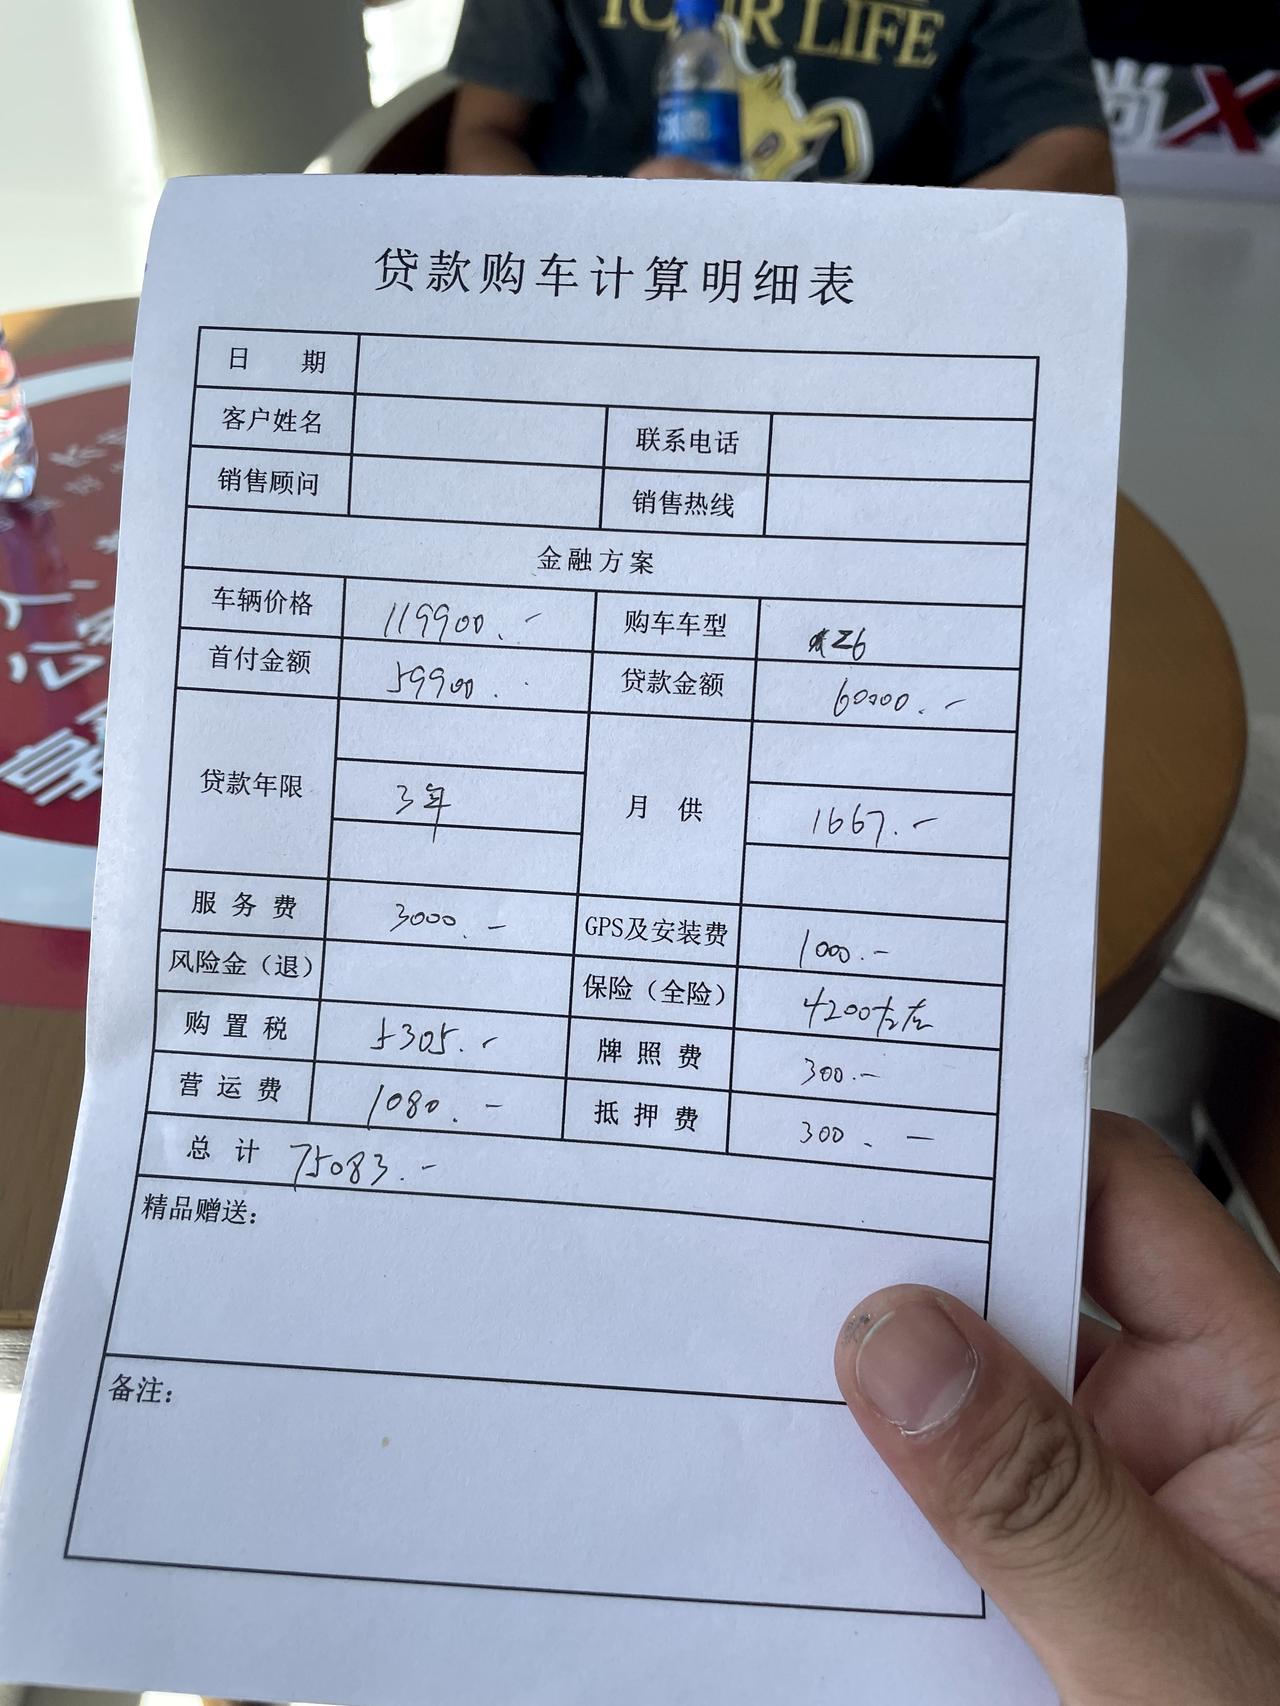 YOUR LIFE
尚X
贷款购车计算明细表
日 期
客户姓名 联系电话
销售顾问 销售热线
金融方案
车辆价格 119900.- 购车车型 Z6
首付金额 59900. 贷款金额 60000.-
贷款年限 3年 月 供 1667.-
服 务 费 3000.- GPS及安装费 1000.-
风险金（退） 保险（全险） 4200左右
购 置 税 5305.- 牌 照 费 300.-
营 运 费 1080.- 抵 押 费 300.-
总 计 75083.-
精品赠送：
备注：